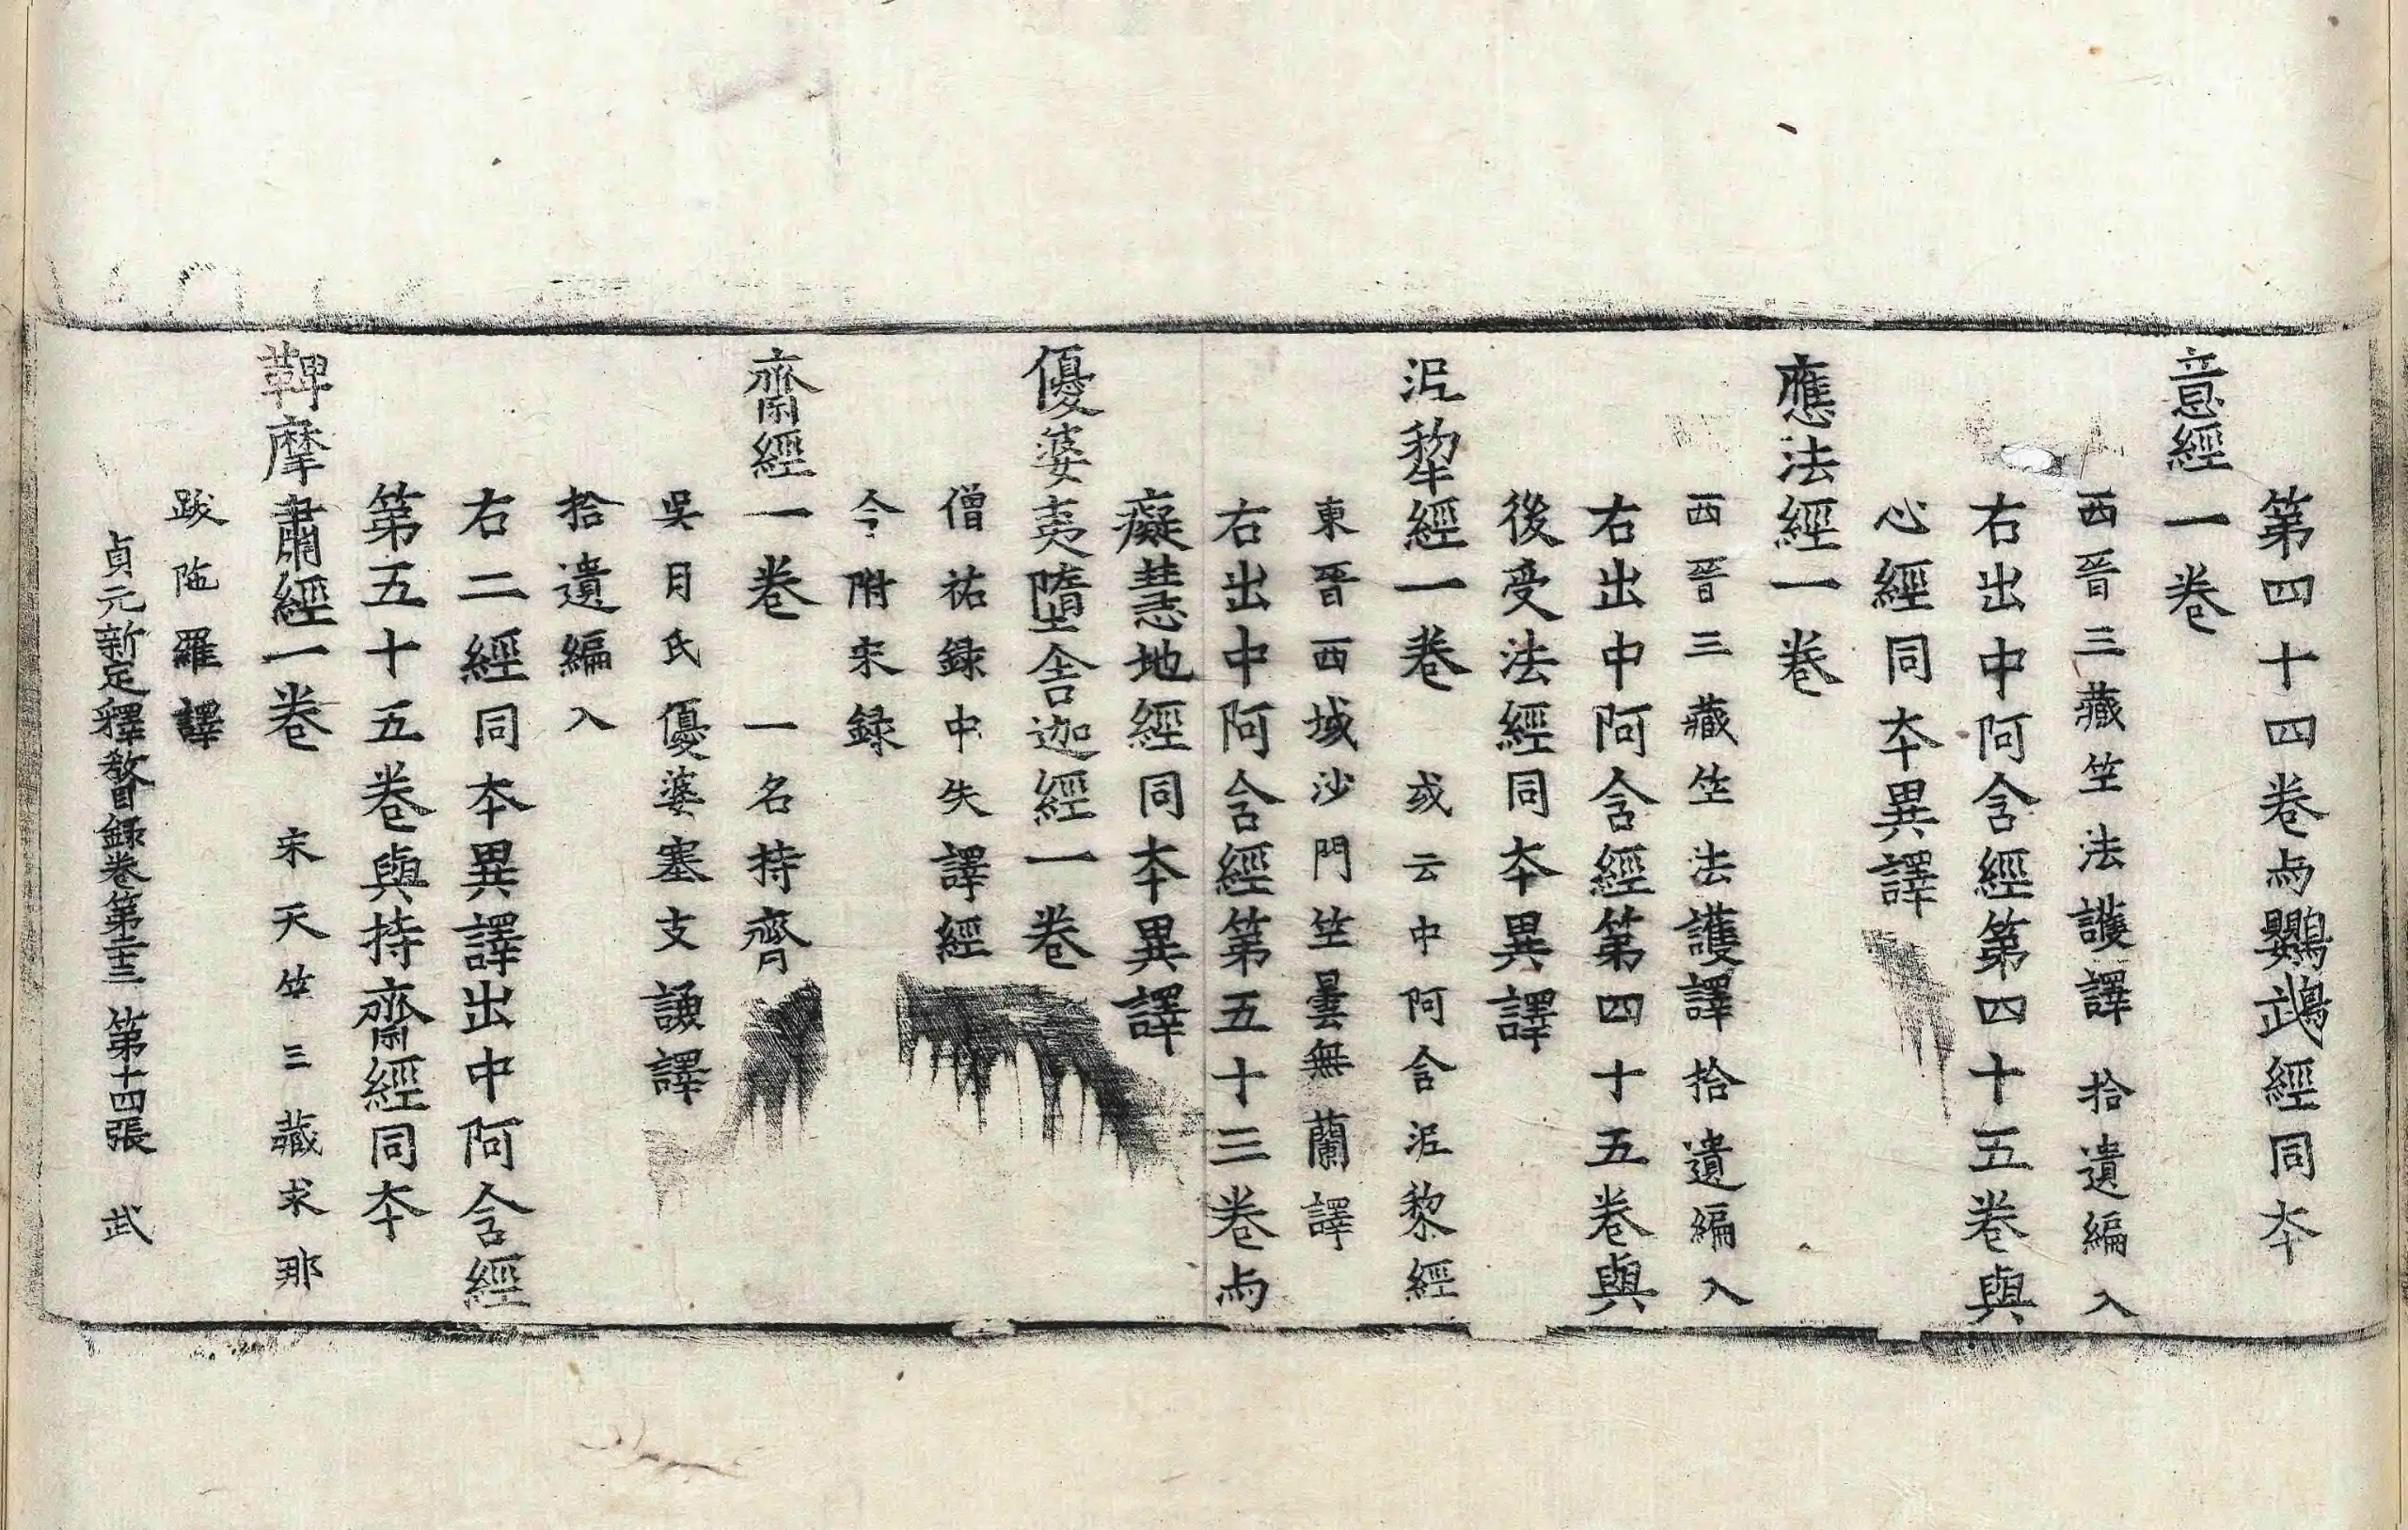 第四十四卷与鸚鵡經同夲
意經一卷
西晉三藏竺法護譯 拾遺編入
右出中阿含經第四十五卷與
心經同夲異譯
應法經一卷
西晉三藏竺法護譯拾遺編入
右出中阿含經第四十五卷與
後受法經同夲異譯
泥犂經一卷 或云中阿含泥黎經
東晉西域沙門竺曇無蘭譯
右出中阿含經第五十三卷与
癡慧地經同夲異譯
優婆夷墮舍迦經一卷
僧祐録中失譯經
今附宋録
齋經一卷 一名持齋
吳月氏優婆塞支謙譯
拾遺編入
右二經同夲異譯出中阿含經
第五十五卷與持齋經同夲
鞞摩肅經一卷 宋天竺三藏求那
跋陁羅譯
貞元新定釋教目録卷第三十三 第十四張 武